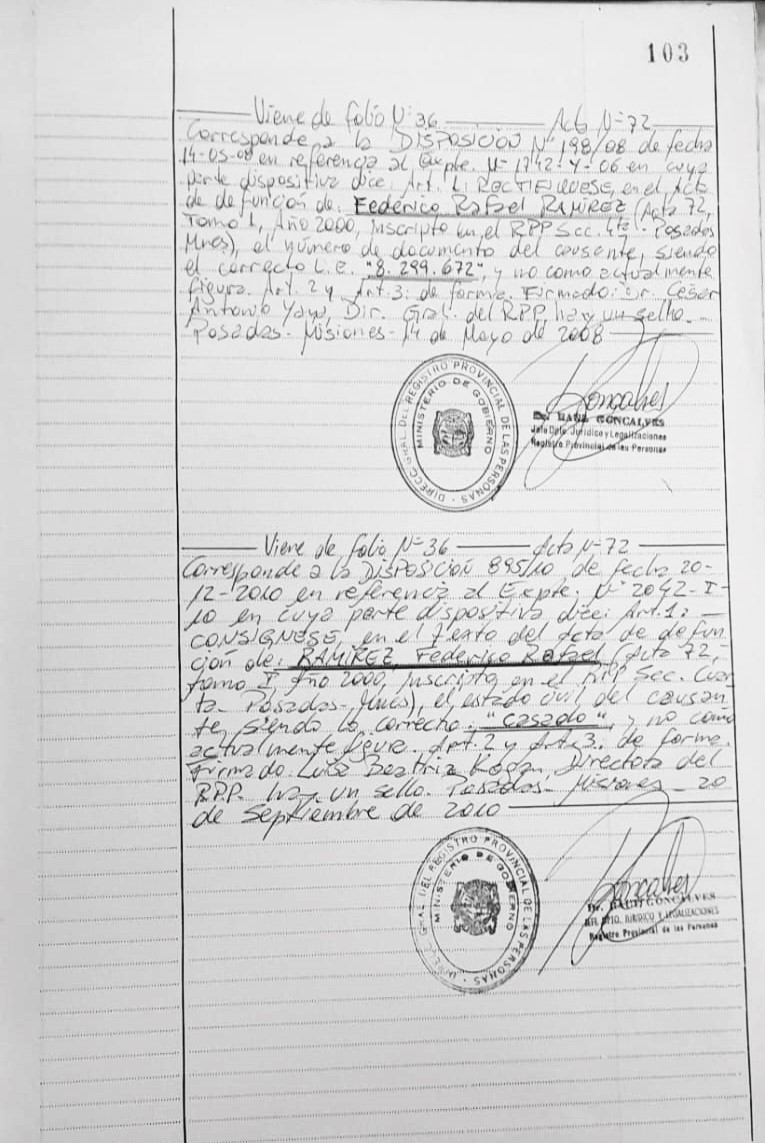 103
Viene de folio Nº 36 Acta Nº 72
Corresponde a la DISPOSICIÓN Nº 198/08 de fecha
14-05-08 en referencia al Expte. Nº 1742-Y-06 en cuya
parte dispositiva dice: Art. 1: RECTIFIQUESE, en el Acta
de defunción de: Federico Rafael RAMIREZ (Acta 72,
Tomo 1, Año 2000, inscripto en el RPP Sec. 4ta - Posadas
Mnes), el número de documento del causante, siendo
el correcto L.E. "8.299.672", y no como actualmente
figura. Art. 2 y Art. 3: de forma. Firmado: Dr. César
Antonio Yayu, Dir. Gral. del RPP, hay un sello.
Posadas- Misiones- 14 de Mayo de 2008
DIRECC. GRAL. DEL REGISTRO PROVINCIAL DE LAS PERSONAS
MINISTERIO DE GOBIERNO
Goncalves
Dr. RAUL GONCALVES
Jefe Dpto. Jurídico y Legalizaciones
Registro Provincial de las Personas
Viene de folio Nº 36 Acta Nº 72
Corresponde a la DISPOSICIÓN 895/10 de fecha 20-
12-2010 en referencia al Expte. Nº 2042-I-
10 en cuya parte dispositiva dice: Art. 1:
CONSIGNESE, en el Texto del Acta de defun
ción de: RAMIREZ, Federico Rafael (Acta 72,
tomo I, Año 2000, inscripto en el RPP Sec. Cuar
ta- Posadas- Mnes), el estado civil del causan
te, siendo lo correcto: "casado", y no como
actualmente figura. Art. 2 y Art. 3: de forma.
Firmado Luisa Beatriz Kogan, Directora del
RPP. hay un sello. Posadas- Misiones- 20
de Septiembre de 2010
DIRECC. GRAL. DEL REGISTRO PROVINCIAL DE LAS PERSONAS
MINISTERIO DE GOBIERNO
Goncalves
Dr. RAUL GONCALVES
DPTO. JURIDICO Y LEGALIZACIONES
Registro Provincial de las Personas